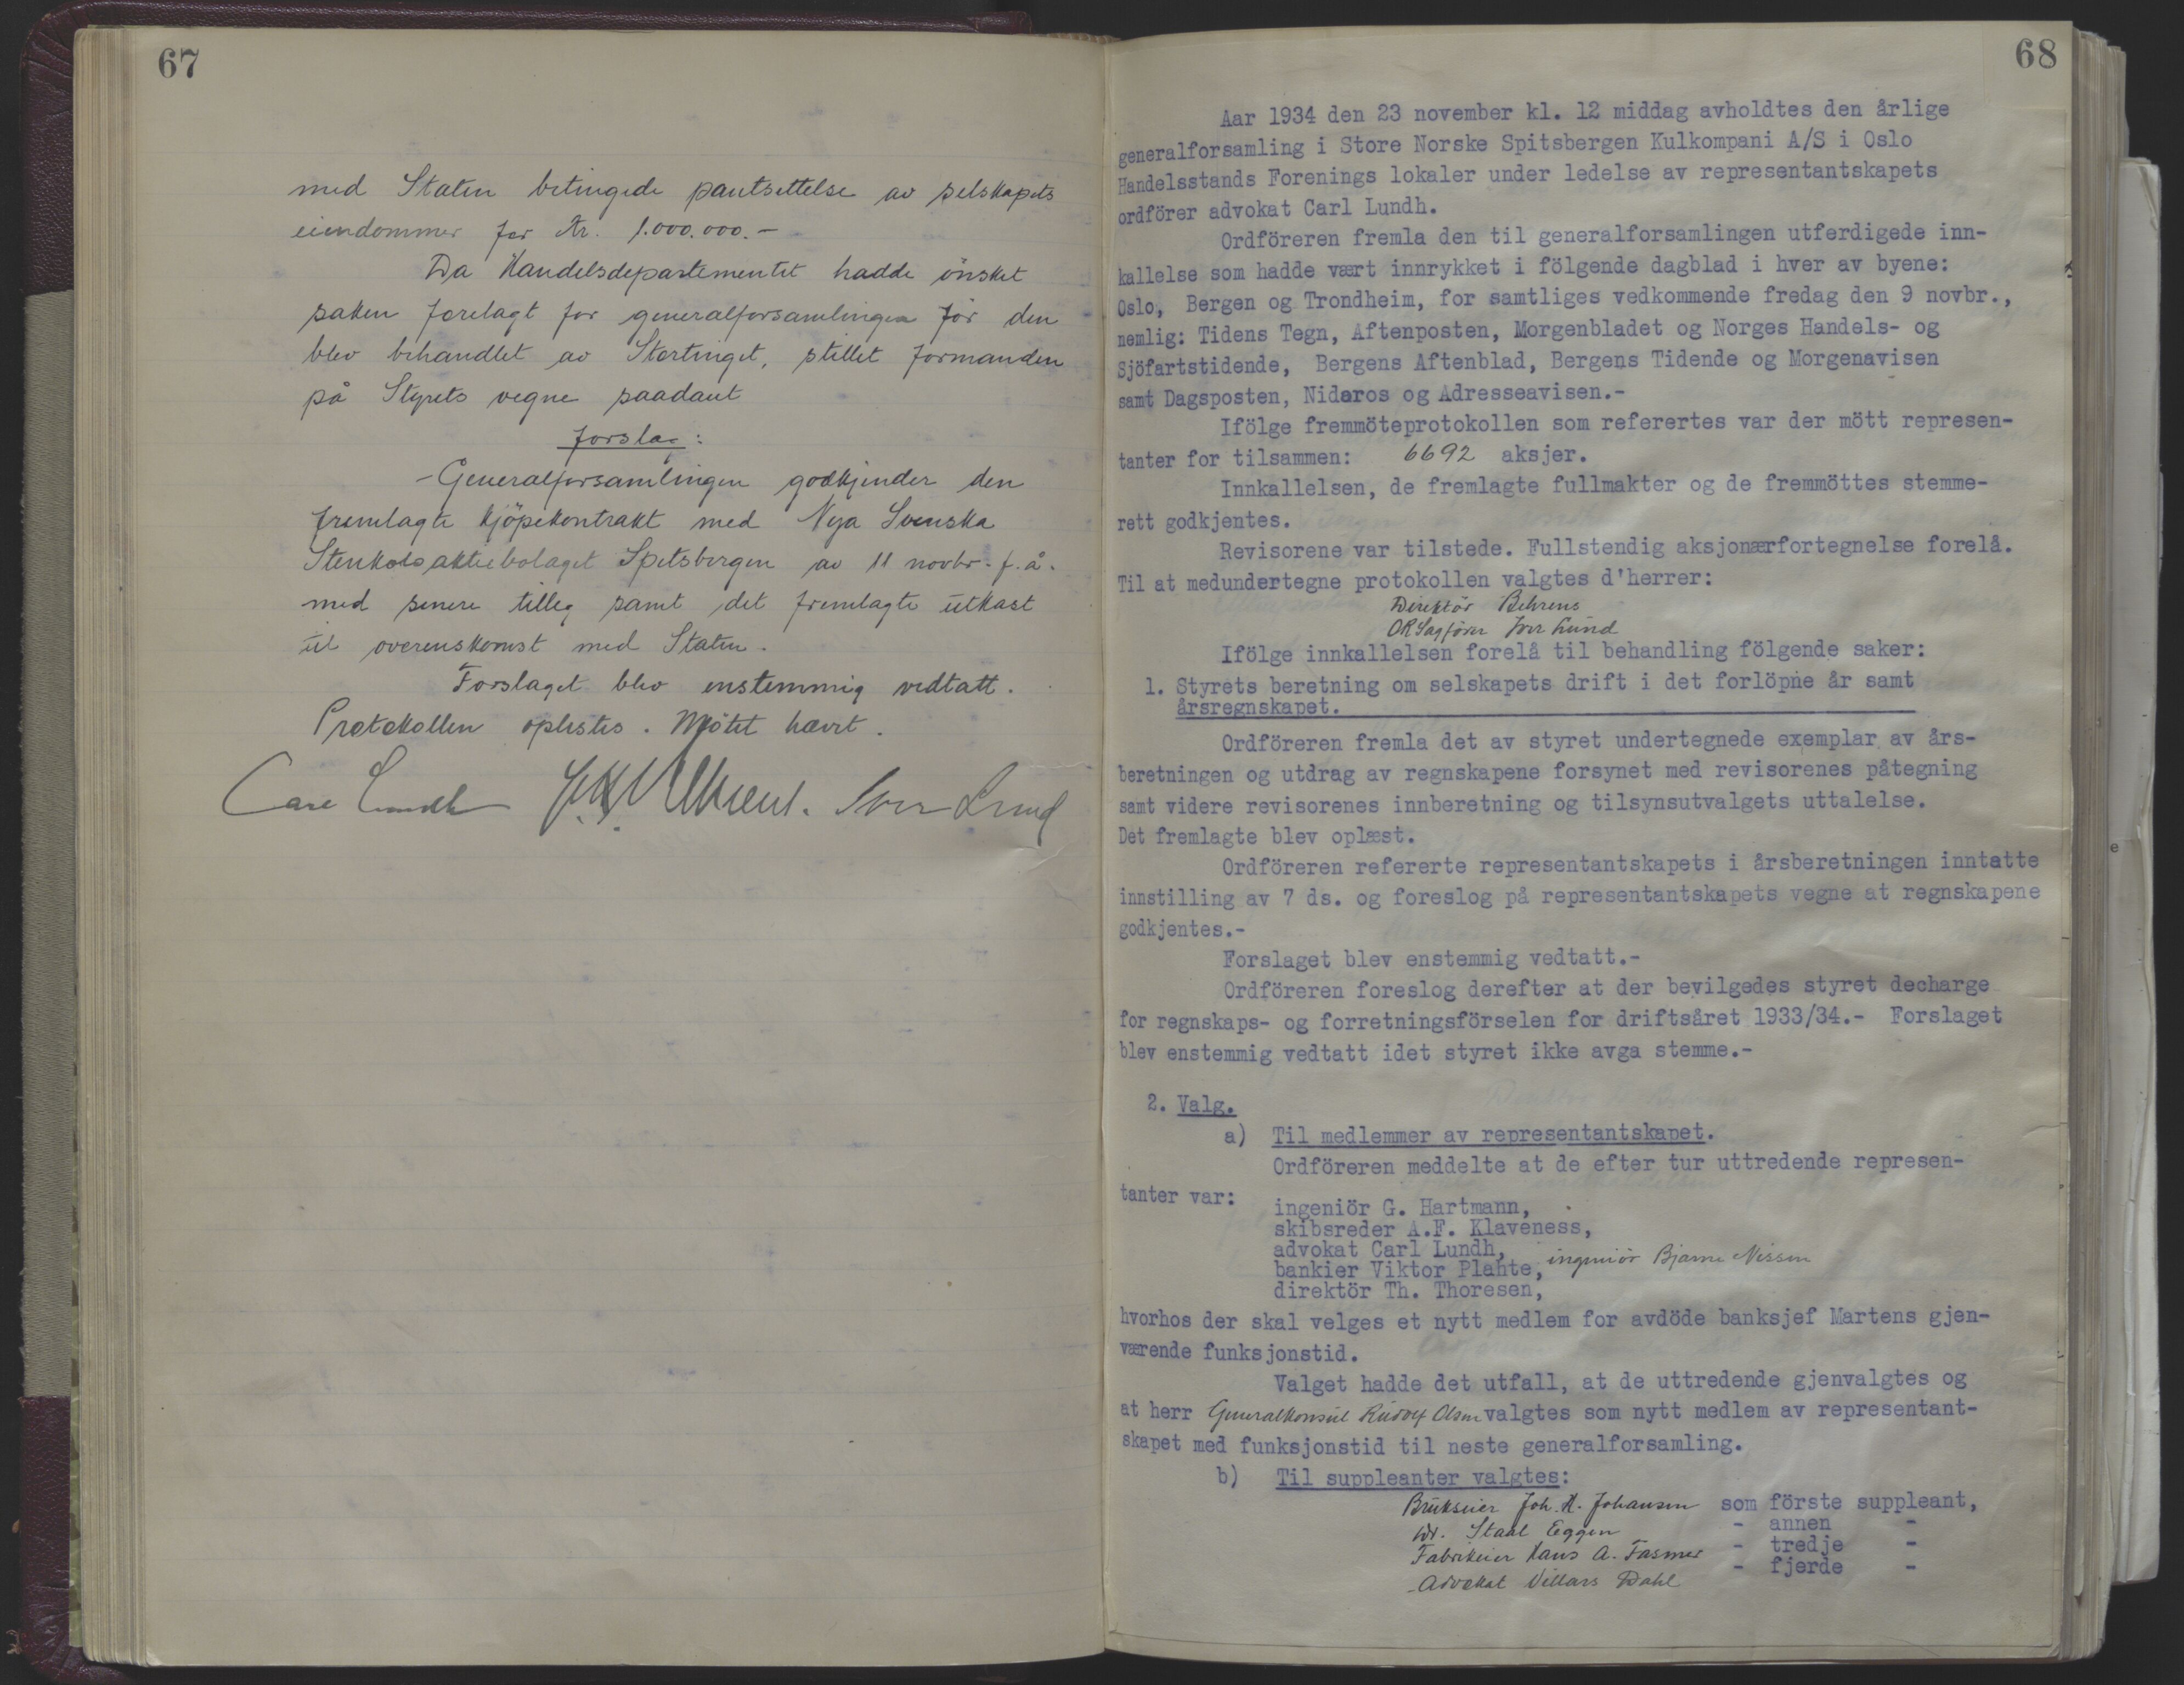 67
med Staten betingede pantsettelse av selskapets
eiendommer for Kr. 1.000.000.-
Da Handelsdepartementet hadde ønsket
saken forelagt for generalforsamlingen før den
blev behandlet av Stortinget, stillet formanden
på Styrets vegne saadant
forslag:
Generalforsamlingen godkjender den
fremlagte kjöpekontrakt med Nya Svenska
Stenkolsaktiebolaget Spetsbergen av 11 novbr. f.å.
med senere tilleg samt det fremlagte utkast
til overenskomst med Staten.
Forslaget blev enstemmig vedtatt.
Protokollen oplestes. Møtet hævet.
Carl Lundh Behrens. Iver Lund
68
Aar 1934 den 23 november kl. 12 middag avholdtes den årlige
generalforsamling i Store Norske Spitsbergen Kulkompani A/S i Oslo
Handelsstands Forenings lokaler under ledelse av representantskapets
ordförer advokat Carl Lundh.
Ordföreren fremla den til generalforsamlingen utferdigede inn-
kallelse som hadde vært innrykket i fölgende dagblad i hver av byene:
Oslo, Bergen og Trondheim, for samtliges vedkommende fredag den 9 novbr.,
nemlig: Tidens Tegn, Aftenposten, Morgenbladet og Norges Handels- og
Sjöfartstidende, Bergens Aftenblad, Bergens Tidende og Morgenavisen
samt Dagsposten, Nidaros og Adresseavisen.-
Ifölge fremmöteprotokollen som referertes var der mött represen-
tanter for tilsammen: 6692 aksjer.
Innkallelsen, de fremlagte fullmakter og de fremmöttes stemme-
rett godkjentes.
Revisorene var tilstede. Fullstendig aksjonærfortegnelse forelå.
Til at medundertegne protokollen valgtes d'herrer:
Direktör Behrens
ORSagförer Iver Lund
Ifölge innkallelsen forelå til behandling fölgende saker:
1. Styrets beretning om selskapets drift i det forlöpne år samt
årsregnskapet.
Ordföreren fremla det av styret undertegnede exemplar av års-
beretningen og utdrag av regnskapene forsynet med revisorenes påtegning
samt videre revisorenes innberetning og tilsynsutvalgets uttalelse.
Det fremlagte blev oplæst.
Ordföreren refererte representantskapets i årsberetningen inntatte
innstilling av 7 ds. og foreslog på representantskapets vegne at regnskapene
godkjentes.-
Forslaget blev enstemmig vedtatt.-
Ordföreren foreslog derefter at der bevilgedes styret decharge
for regnskaps- og forretningsförselen for driftsåret 1933/34.- Forslaget
blev enstemmig vedtatt idet styret ikke avga stemme.-
2. Valg.
a) Til medlemmer av representantskapet.
Ordföreren meddelte at de efter tur uttredende represen-
tanter var:
ingeniör G. Hartmann,
skibsreder A.F. Klaveness,
advokat Carl Lundh,
bankier Viktor Plahte, ingeniör Bjarne Nissen
direktör Th. Thoresen,
hvorhos der skal velges et nytt medlem for avdöde banksjef Martens gjen-
værende funksjonstid.
Valget hadde det utfall, at de uttredende gjenvalgtes og
at herr Generalkonsul Rudolf Olsen valgtes som nytt medlem av representant-
skapet med funksjonstid til neste generalforsamling.
b) Til suppleanter valgtes:
Brukseier Joh. H. Johansen som förste suppleant,
Dr. Staal Eggen - annen -
Fabrikeier Hans A. Fasmer - tredje -
Advokat Villars Dahl - fjerde -